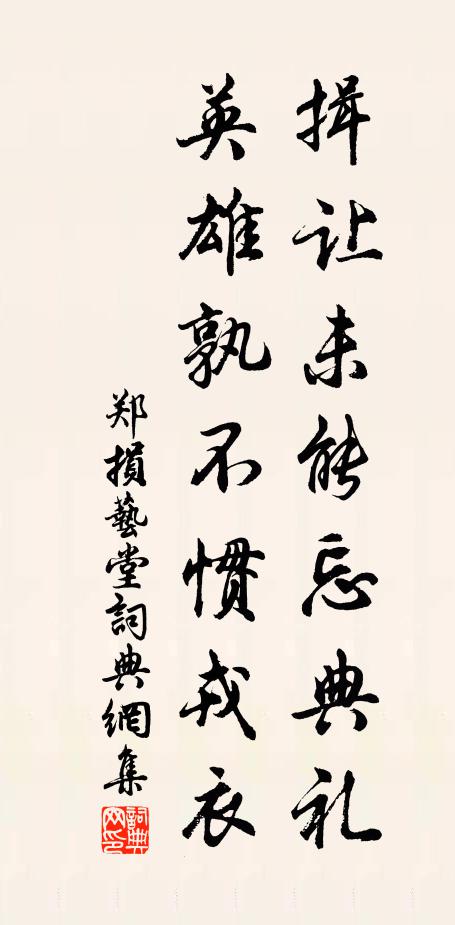 揖让未能忘典礼
英雄孰不惯戎衣
郑损藝堂詞典網集
詞典网印